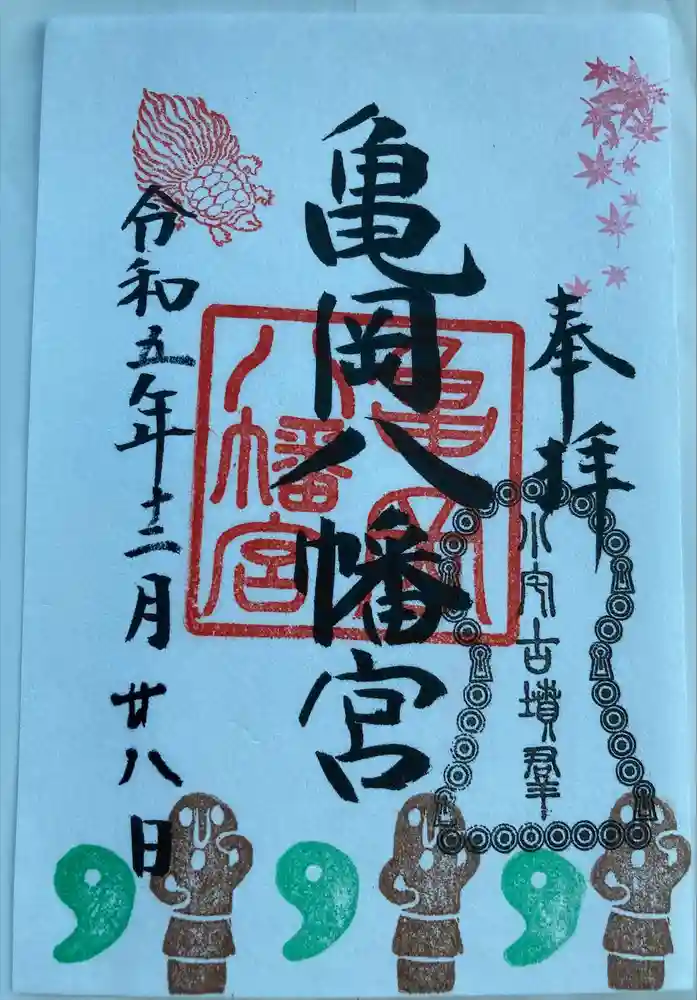 奉拝
小向古墳群
亀岡八幡宮
亀岡八幡宮
令和五年十二月廿八日